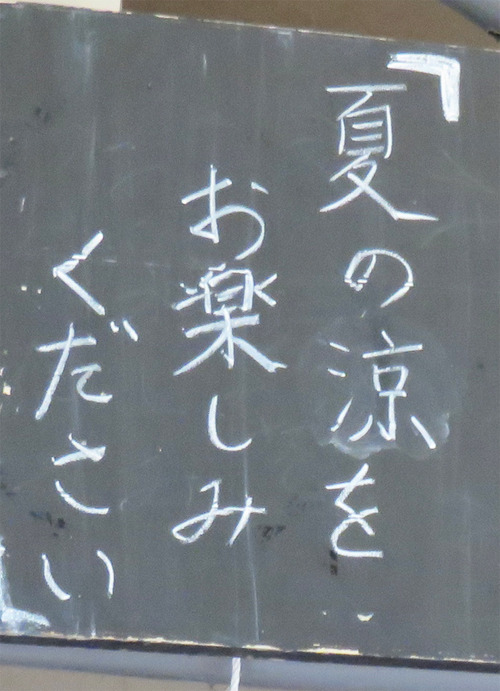 夏の涼を
お楽しみ
ください